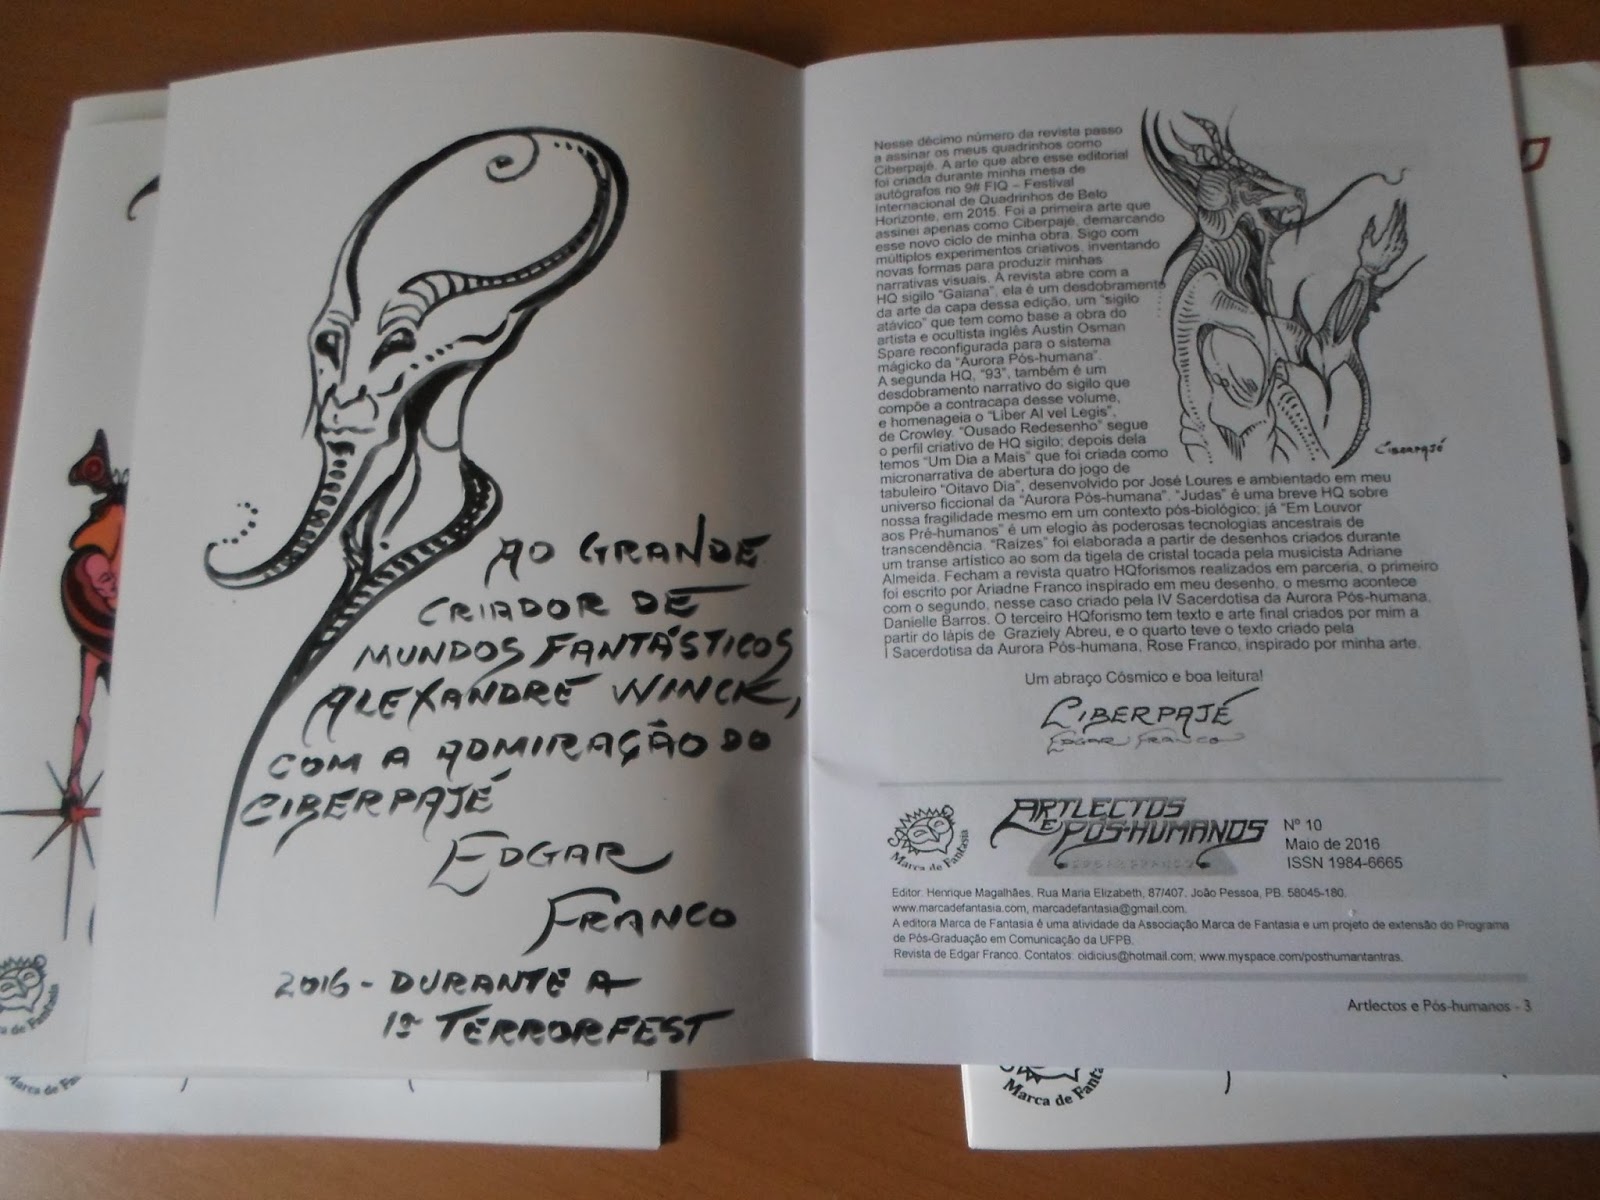 AO GRANDE
CRIADOR DE
MUNDOS FANTÁSTICOS
ALEXANDRE WINCK,
COM A ADMIRAÇÃO DO
CIBERPAJÉ
EDGAR
FRANCO
2016 - DURANTE A
1º TERRORFEST
Nesse décimo número da revista passo
a assinar os meus quadrinhos como
Ciberpajé. A arte que abre esse editorial
foi criada durante minha mesa de
autógrafos no 9# FIQ – Festival
Internacional de Quadrinhos de Belo
Horizonte, em 2015. Foi a primeira arte que
assinei apenas como Ciberpajé, demarcando
esse novo ciclo de minha obra. Sigo com
múltiplos experimentos criativos, inventando
novas formas para produzir minhas
narrativas visuais. A revista abre com a
HQ sigilo "Gaiana", ela é um desdobramento
da arte da capa dessa edição, um "sigilo
atávico" que tem como base a obra do
artista e ocultista inglês Austin Osman
Spare reconfigurada para o sistema
mágicko da "Aurora Pós-humana".
A segunda HQ, "93", também é um
desdobramento narrativo do sigilo que
compõe a contracapa desse volume,
e homenageia o "Liber Al vel Legis",
de Crowley. "Ousado Redesenho" segue
o perfil criativo de HQ sigilo; depois dela
temos "Um Dia a Mais" que foi criada como
micronarrativa de abertura do jogo de
tabuleiro "Oitavo Dia", desenvolvido por José Loures e ambientado em meu
universo ficcional da "Aurora Pós-humana". "Judas" é uma breve HQ sobre
nossa fragilidade mesmo em um contexto pós-biológico; já "Em Louvor
aos Pré-humanos" é um elogio às poderosas tecnologias ancestrais de
transcendência. "Raízes" foi elaborada a partir de desenhos criados durante
um transe artístico ao som da tigela de cristal tocada pela musicista Adriane
Almeida. Fecham a revista quatro HQforismos realizados em parceria, o primeiro
foi escrito por Ariadne Franco inspirado em meu desenho, o mesmo acontece
com o segundo, nesse caso criado pela IV Sacerdotisa da Aurora Pós-humana,
Danielle Barros. O terceiro HQforismo tem texto e arte final criados por mim a
partir do lápis de Graziely Abreu, e o quarto teve o texto criado pela
I Sacerdotisa da Aurora Pós-humana, Rose Franco, inspirado por minha arte.
Ciberpajé
Um abraço Cósmico e boa leitura!
CIBERPAJÉ
EDGAR FRANCO
Marca de Fantasia
ARTLECTOS
E PÓS-HUMANOS
Nº 10
Maio de 2016
ISSN 1984-6665
Editor: Henrique Magalhães. Rua Maria Elizabeth, 87/407. João Pessoa, PB. 58045-180.
www.marcadefantasia.com, marcadefantasia@gmail.com.
A editora Marca de Fantasia é uma atividade da Associação Marca de Fantasia e um projeto de extensão do Programa
de Pós-Graduação em Comunicação da UFPB.
Revista de Edgar Franco. Contatos: oidicius@hotmail.com; www.myspace.com/posthumantantras.
Artlectos e Pós-humanos - 3
Marca de Fantasia